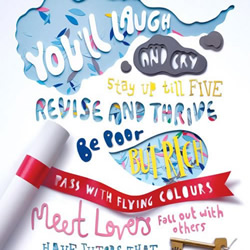 YOU'LL LAUGH
AND CRY
STAY UP TILL FIVE
REVISE AND THRIVE
Be POOR
BUT RICH
PASS WITH FLYING COLOURS
Meet Lovers
Fall out with
others
HAVE TUTORS THAT